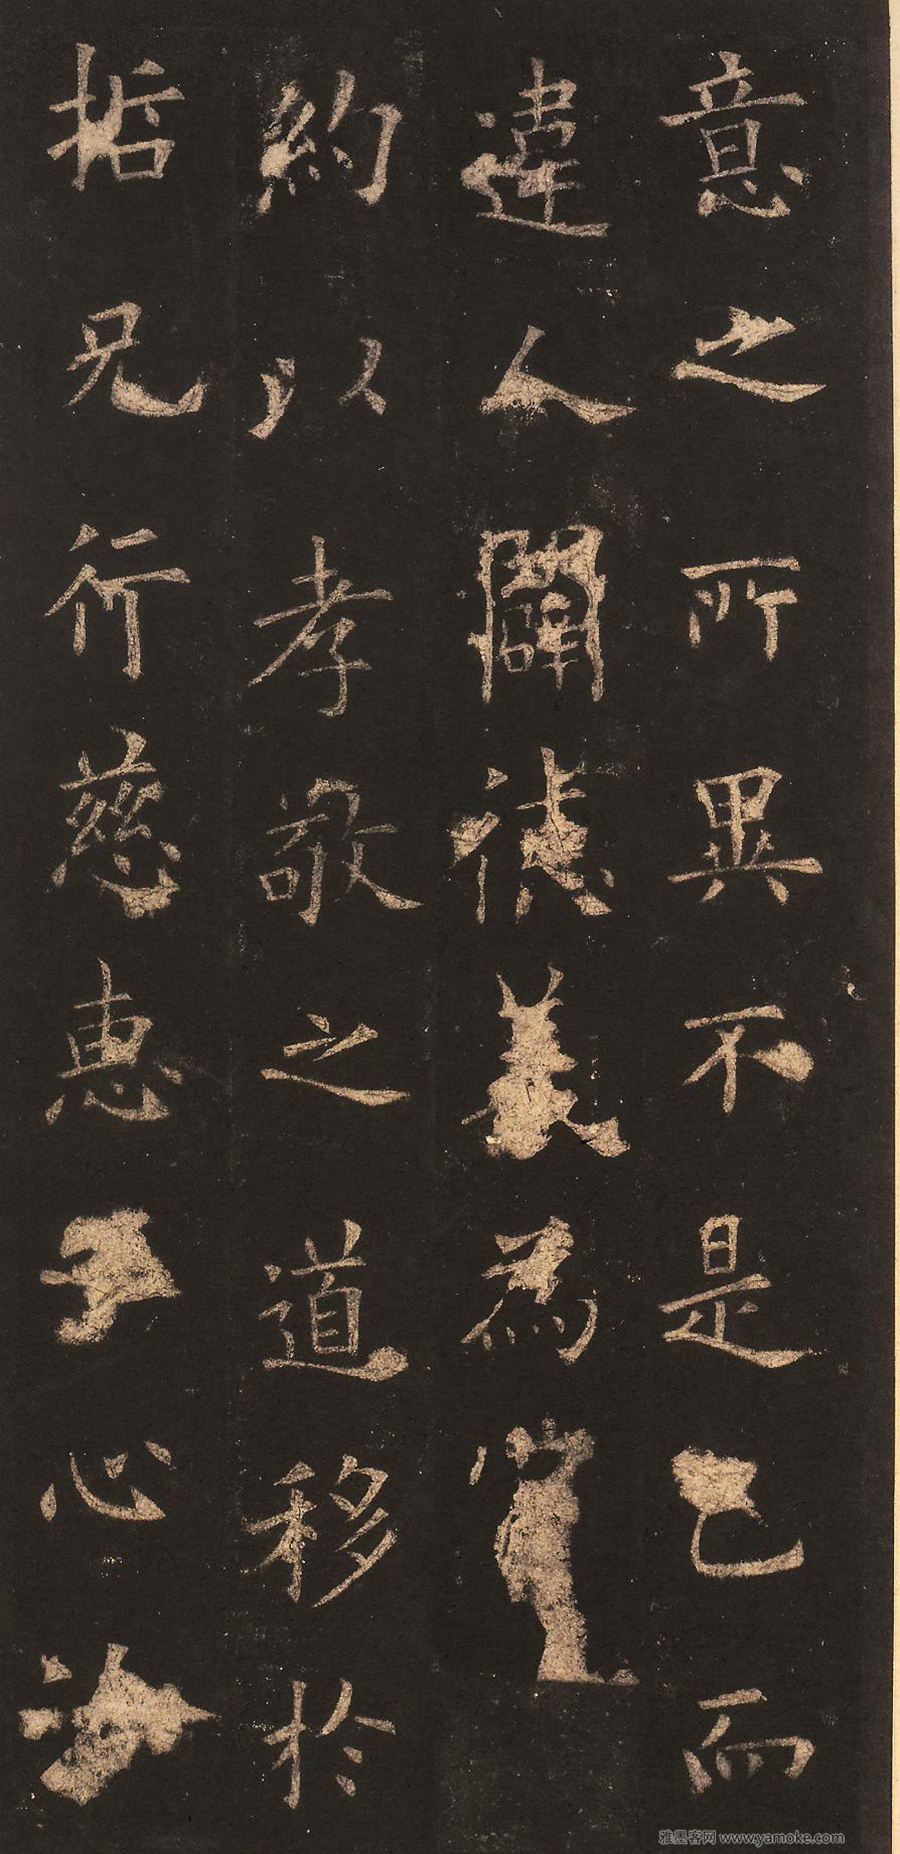 意之所異不是己而
違人闢德義為
約以孝敬之道移於
哲兄行慈惠心
雅墨客网 www.yamoke.com